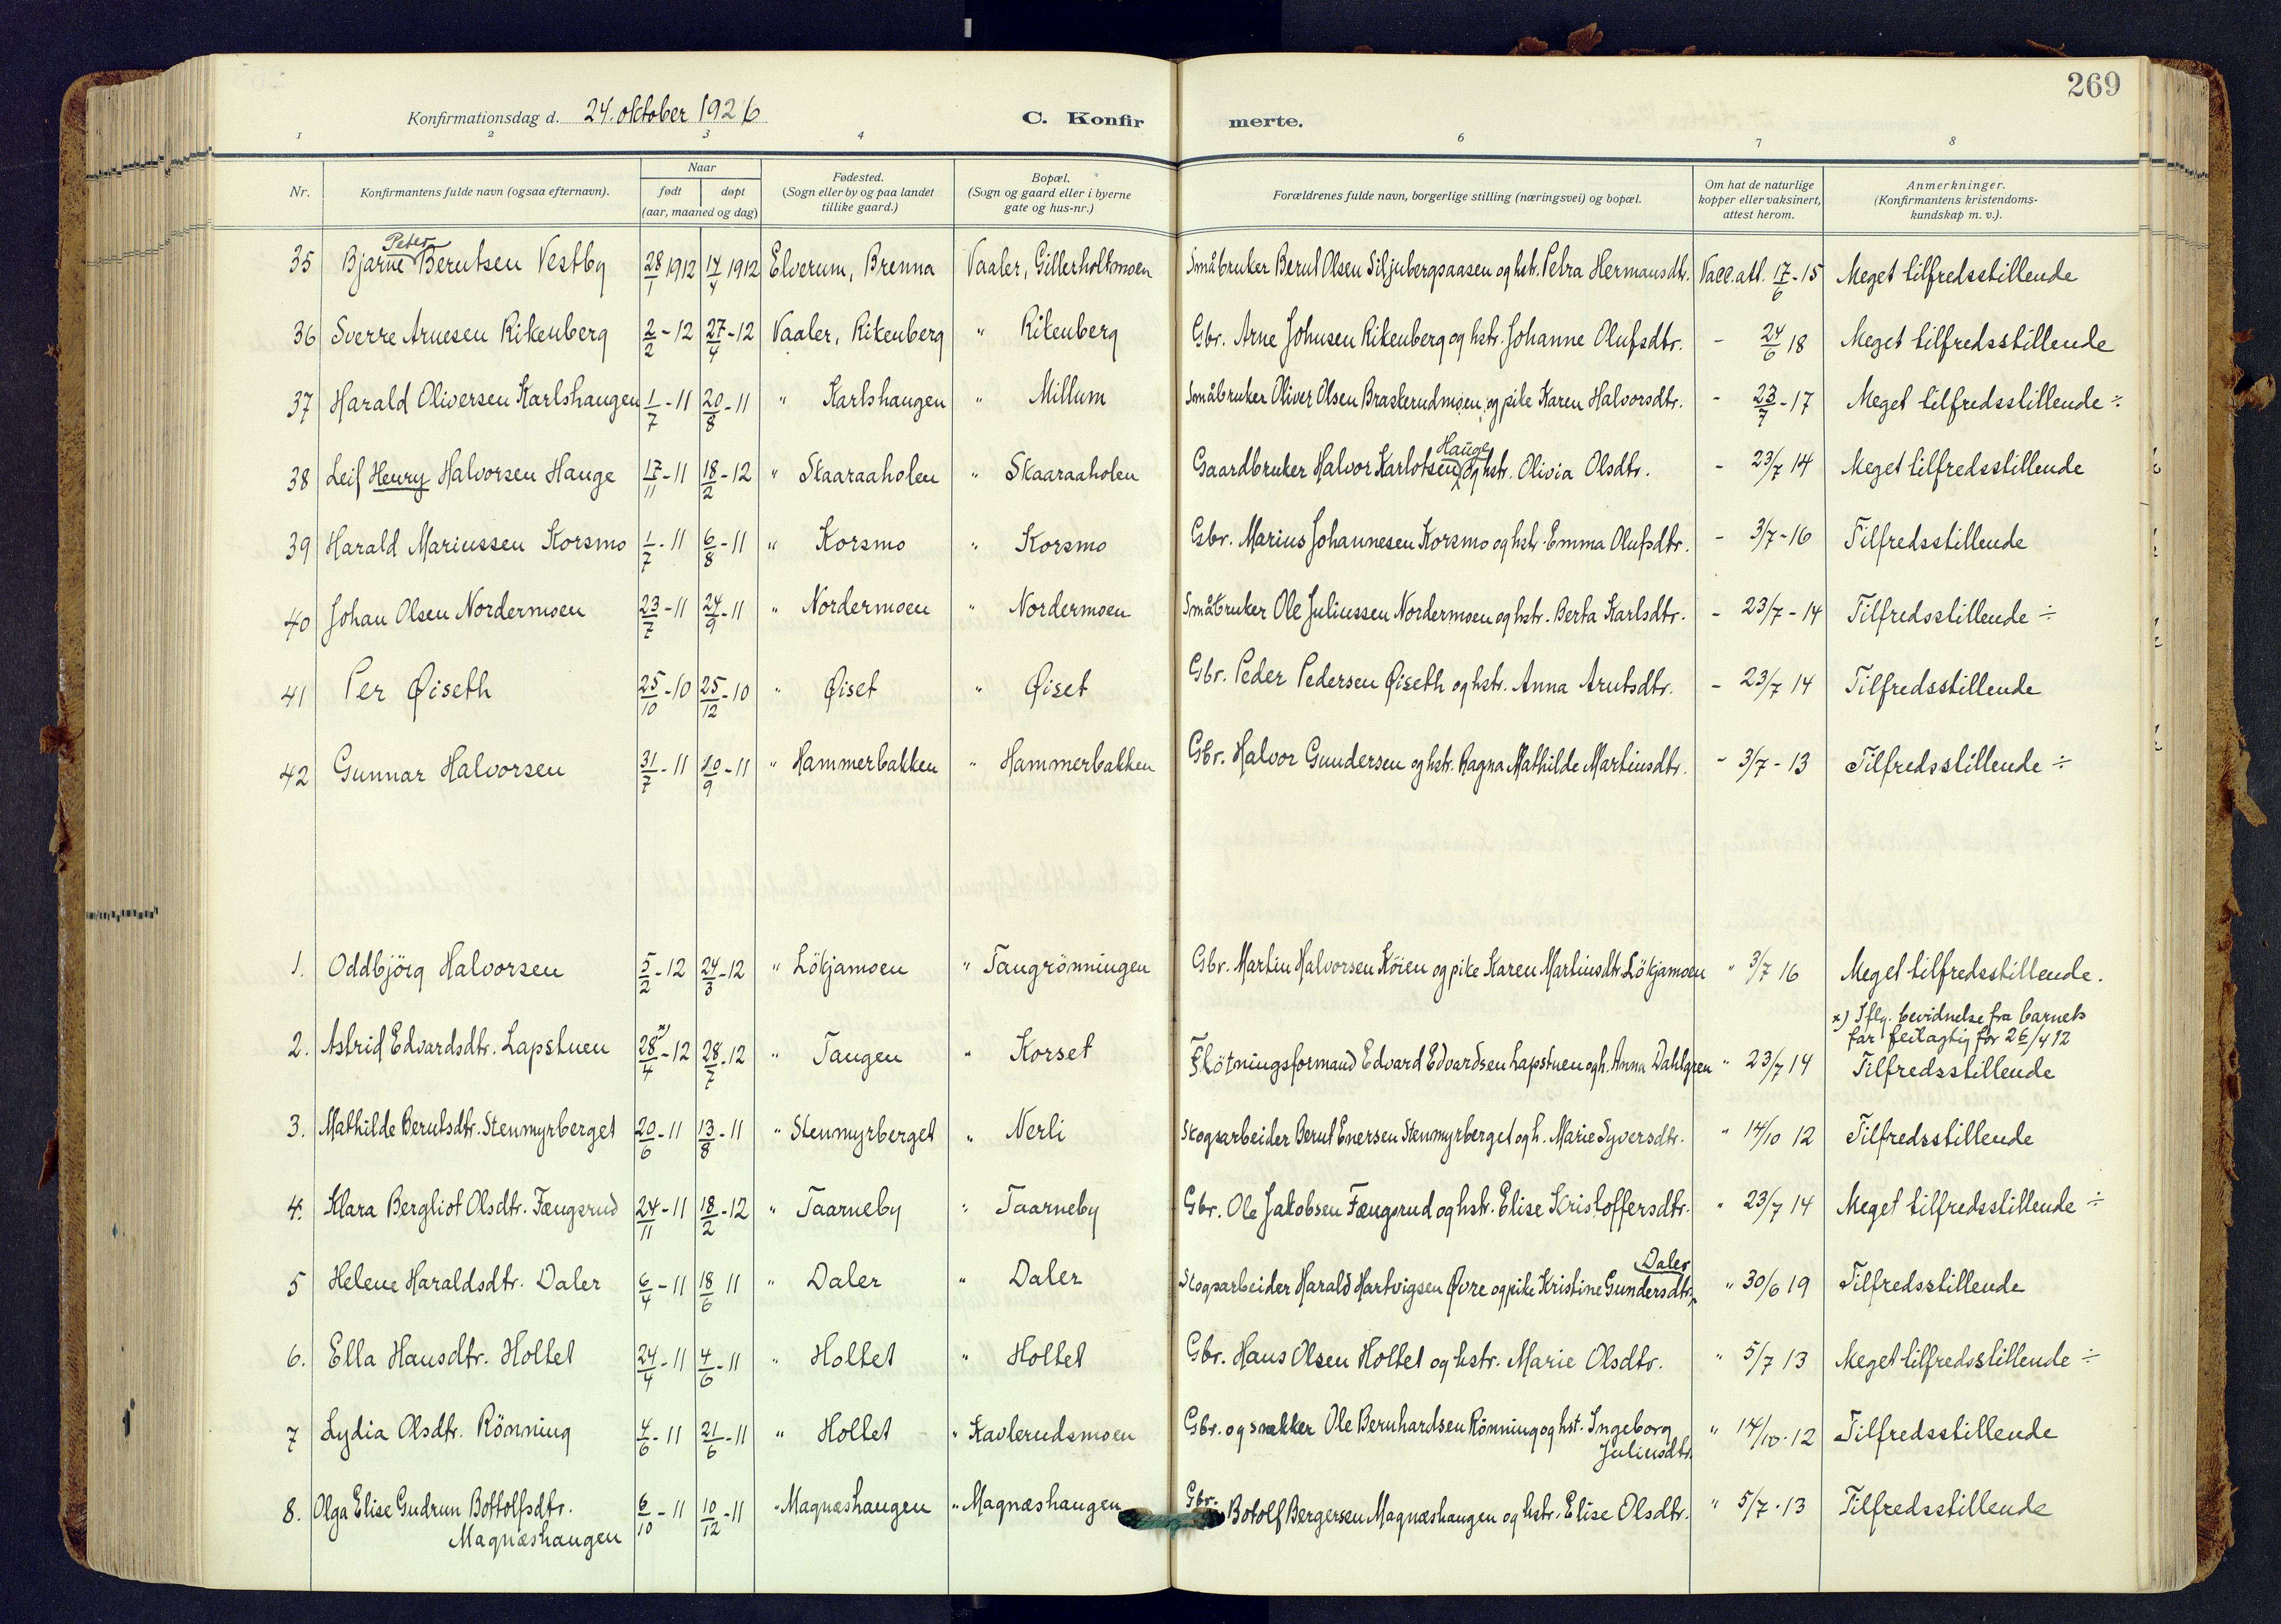 269
Konfirmationsdag d. 24. oktober 1926 C. Konfirmerte.
1 2 3 4 6 7 8
Nr. Konfirmantens fulde navn (ogsaa efternavn). Naar født døpt (aar, maaned og dag) Fødested. (Sogn eller by og paa landet tillike gaard.) Bopæl. (Sogn og gaard eller i byerne gate og hus-nr.) Forældrenes fulde navn, borgerlige stilling (næringsvei) og bopæl. Om hat de naturlige kopper eller vaksinert, attest herom. Anmerkninger. (Konfirmantens kristendoms-kundskap m. v.).
35 Bjarne Peter Berntsen Vestby 28/1 1912 14/4 1912 Elverum, Brenna Vaaler, Gillerholtmoen Småbruker Bernt Olsen Siljubergsaasen og hstr. Petra Hermansdtr. Vacc.att. 17/6-15 Meget tilfredsstillende
36 Sverre Arnesen Rikenberg 2/2-12 27/4-12 Vaaler, Rikenberg " Rikenberg Gbr. Arne Johnsen Rikenberg og hstr. Johanne Olufsdtr. - 24/6 18 Meget tilfredsstillende
37 Harald Oliversen Karlshaugen 1/7-11 20/8-11 " Karlshaugen " Millum Småbruker Oliver Olsen Braskerudmoen og pike Karen Halvorsdtr. - 23/7-17 Meget tilfredsstillende ÷
38 Leif Henry Halvorsen Hauge 17/11-11 18/2-12 " Skaaraaholen " Skaaraaholen Gaardbruker Halvor Karlotsen Hauge og hstr. Olivia Olsdtr. - 23/7 14 Meget tilfredsstillende
39 Harald Mariussen Korsmo 1/7-11 6/8-11 " Korsmo " Korsmo Gbr. Marius Johannesen Korsmo og hstr. Emma Olufsdtr. - 3/7-16 Tilfredsstillende
40 Johan Olsen Nordermoen 23/7-11 24/9-11 " Nordermoen " Nordermoen Småbruker Ole Juliussen Nordermoen og hstr. Berta Karlsdtr. - 23/7-14 Tilfredsstillende ÷
41 Per Øiseth 25/10-10 25/12-10 " Øiset " Øiset Gbr. Peder Pedersen Øiseth og hstr. Anna Arntsdtr. - 23/7 14 Tilfredsstillende
42 Gunnar Halvorsen 31/7-11 10/9-11 " Hammerbakken " Hammerbakken Gbr. Halvor Gundersen og hstr. Ragna Mathilde Martinsdtr. - 3/7-13 Tilfredsstillende ÷
1. Oddbjörg Halvorsen 5/2-12 24/3-12 " Lökjamoen " Taugrönningen Gbr. Martin Halvorsen Köien og pike Karen Martinsdtr. Lökjamoen " 3/7 16 Meget tilfredsstillende.
x) Iflg. bevidnelse fra barnets
far feilagtig for 26/4 12
2. Astrid Edvardsdtr. Lapstuen 28/4 x)-12 28/7-12 " Taugen " Korset Flötningsformand Edvard Edvardsen Lapstuen og h. Anna Dahlgren " 23/7 14 Tilfredsstillende
3. Mathilde Berntsdtr. Stenmyrberget 20/6-11 13/8-11 " Stenmyrberget " Nerli Skogsarbeider Bernt Enersen Stenmyrberget og h. Marie Syversdtr. " 14/10 12 Tilfredsstillende
4. Klara Bergliot Olsdtr. Fængsrud 24/11-11 18/2-12 " Taarneby " Taarneby Gbr. Ole Jakobsen Fængsrud og hstr. Elise Kristoffersdtr. " 23/7 14 Meget tilfredsstillende ÷
5 Helene Haraldsdtr. Daler 6/4-11 18/6 11 " Daler " Daler Skogsarbeider Harald Hartvigsen Øvre og pike Kristine Gundersdtr. Daler " 30/6 19 Tilfredsstillende
6. Ella Hansdtr. Holtet 24/4-11 4/6-11 " Holtet " Holtet Gbr. Hans Olsen Holtet og hstr. Marie Olsdtr. " 5/7 13 Meget tilfredsstillende ÷
7 Lydia Olsdtr. Rönning 4/6-11 21/6-11 " Holtet " Kavlerudsmoen Gbr. og snekker Ole Bernhardsen Rönning og hst. Ingeborg
Juliusdtr. " 14/10-12 Tilfredsstillende
8. Olga Elise Gudrun Bottolfsdtr.
Magnæshaugen 6/10-11 10/12-11 " Magnæshaugen " Magnæshaugen Gbr. Botolf Bergersen Magnæshaugen og hstr. Elise Olsdtr. " 5/7-13 Tilfredsstillende